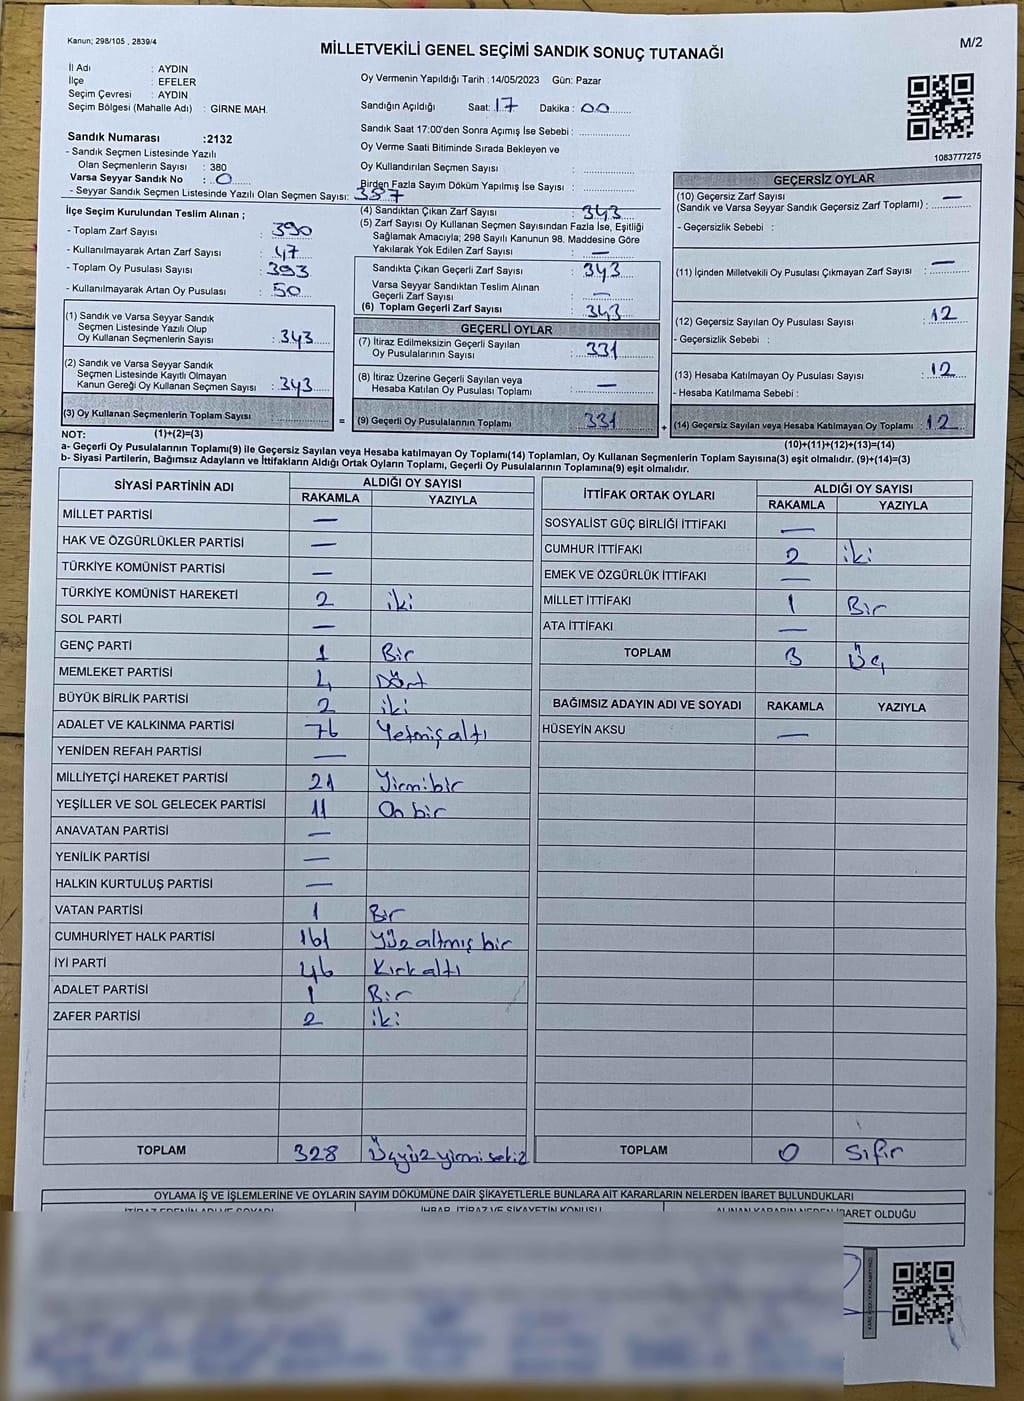 Kanun; 298/105 , 2839/4
MİLLETVEKİLİ GENEL SEÇİMİ SANDIK SONUÇ TUTANAĞI
M/2
İl Adı : AYDIN
İlçe : EFELER
Seçim Çevresi : AYDIN
Seçim Bölgesi (Mahalle Adı) : GİRNE MAH.
Sandık Numarası :2132
- Sandık Seçmen Listesinde Yazılı
Olan Seçmenlerin Sayısı : 380
Varsa Seyyar Sandık No : 0
- Seyyar Sandık Seçmen Listesinde Yazılı Olan Seçmen Sayısı:
Oy Vermenin Yapıldığı Tarih :14/05/2023 Gün: Pazar
Sandığın Açıldığı Saat: 17 Dakika : 00
Sandık Saat 17:00'den Sonra Açımış İse Sebebi :
Oy Verme Saati Bitiminde Sırada Bekleyen ve
Oy Kullandırılan Seçmen Sayısı :
Birden Fazla Sayım Döküm Yapılmış İse Sayısı :
1083777275
İlçe Seçim Kurulundan Teslim Alınan ;
- Toplam Zarf Sayısı : 390
- Kullanılmayarak Artan Zarf Sayısı : 47
- Toplam Oy Pusulası Sayısı : 393
- Kullanılmayarak Artan Oy Pusulası : 50
(1) Sandık ve Varsa Seyyar Sandık
Seçmen Listesinde Yazılı Olup
Oy Kullanan Seçmenlerin Sayısı : 343
(2) Sandık ve Varsa Seyyar Sandık
Seçmen Listesinde Kayıtlı Olmayan
Kanun Gereği Oy Kullanan Seçmen Sayısı : 343
(3) Oy Kullanan Seçmenlerin Toplam Sayısı
(1)+(2)=(3)
(4) Sandıktan Çıkan Zarf Sayısı : 343
(5) Zarf Sayısı Oy Kullanan Seçmen Sayısından Fazla İse, Eşitliği
Sağlamak Amacıyla; 298 Sayılı Kanunun 98. Maddesine Göre
Yakılarak Yok Edilen Zarf Sayısı : —
Sandıkta Çıkan Geçerli Zarf Sayısı : 343
Varsa Seyyar Sandıktan Teslim Alınan
Geçerli Zarf Sayısı : —
(6) Toplam Geçerli Zarf Sayısı : 343
GEÇERLİ OYLAR
(7) İtiraz Edilmeksizin Geçerli Sayılan
Oy Pusulalarının Sayısı : 331
(8) İtiraz Üzerine Geçerli Sayılan veya
Hesaba Katılan Oy Pusulası Toplamı : —
= (9) Geçerli Oy Pusulalarının Toplamı 331
GEÇERSİZ OYLAR
(10) Geçersiz Zarf Sayısı
(Sandık ve Varsa Seyyar Sandık Geçersiz Zarf Toplamı) : —
- Geçersizlik Sebebi :
(11) İçinden Milletvekili Oy Pusulası Çıkmayan Zarf Sayısı : —
(12) Geçersiz Sayılan Oy Pusulası Sayısı : 12
- Geçersizlik Sebebi :
(13) Hesaba Katılmayan Oy Pusulası Sayısı : 12
- Hesaba Katılmama Sebebi :
+ (14) Geçersiz Sayılan veya Hesaba Katılmayan Oy Toplamı : 12
(10)+(11)+(12)+(13)=(14)
NOT:
a- Geçerli Oy Pusulalarının Toplamı(9) ile Geçersiz Sayılan veya Hesaba katılmayan Oy Toplamı(14) Toplamları, Oy Kullanan Seçmenlerin Toplam Sayısına(3) eşit olmalıdır. (9)+(14)=(3)
b- Siyasi Partilerin, Bağımsız Adayların ve İttifakların Aldığı Ortak Oyların Toplamı, Geçerli Oy Pusulalarının Toplamına(9) eşit olmalıdır.
SİYASİ PARTİNİN ADI ALDIĞI OY SAYISI
RAKAMLA YAZIYLA
MİLLET PARTİSİ —
HAK VE ÖZGÜRLÜKLER PARTİSİ —
TÜRKİYE KOMÜNİST PARTİSİ —
TÜRKİYE KOMÜNİST HAREKETİ 2 iki
SOL PARTİ —
GENÇ PARTİ 1 Bir
MEMLEKET PARTİSİ 4 Dört
BÜYÜK BİRLİK PARTİSİ 2 iki
ADALET VE KALKINMA PARTİSİ 76 Yetmiş altı
YENİDEN REFAH PARTİSİ —
MİLLİYETÇİ HAREKET PARTİSİ 21 Yirmi bir
YEŞİLLER VE SOL GELECEK PARTİSİ 11 On bir
ANAVATAN PARTİSİ —
YENİLİK PARTİSİ —
HALKIN KURTULUŞ PARTİSİ —
VATAN PARTİSİ 1 Bir
CUMHURİYET HALK PARTİSİ 161 Yüz altmış bir
İYİ PARTİ 46 Kırk altı
ADALET PARTİSİ 1 Bir
ZAFER PARTİSİ 2 iki
TOPLAM 328 Üçyüz yirmi sekiz
İTTİFAK ORTAK OYLARI ALDIĞI OY SAYISI
RAKAMLA YAZIYLA
SOSYALİST GÜÇ BİRLİĞİ İTTİFAKI —
CUMHUR İTTİFAKI 2 iki
EMEK VE ÖZGÜRLÜK İTTİFAKI —
MİLLET İTTİFAKI 1 Bir
ATA İTTİFAKI —
TOPLAM 3 Üç
BAĞIMSIZ ADAYIN ADI VE SOYADI RAKAMLA YAZIYLA
HÜSEYİN AKSU —
TOPLAM 0 Sıfır
OYLAMA İŞ VE İŞLEMLERİNE VE OYLARIN SAYIM DÖKÜMÜNE DAİR ŞİKAYETLERLE BUNLARA AİT KARARLARIN NELERDEN İBARET BULUNDUKLARI
İTİRAZ EDENİN ADI VE SOYADI İHBAR, İTİRAZ VE ŞİKAYETİN KONUSU ALINAN KARARIN NEDEN İBARET OLDUĞU